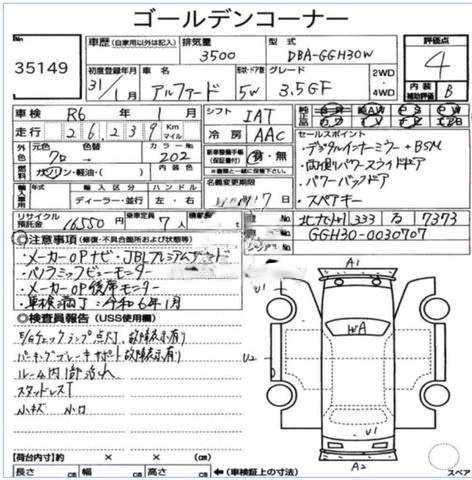 ゴールデンコーナー
35149
車歴 (自家用以外は記入)
排気量
3500
型式
DBA-GGH30W
評価点
4
初度登録年月
31/1月
車名
アルファード
形状・ドア数
5W
グレード
3.5GF
2WD
4WD
内装
補助評価
B
車検 R6年1月
シフト IAT
走行 26,239 Km マイル
冷房 AAC
セールスポイント
・デジタルインナーミラー+BSM
・両側パワースライドドア
・パワーバックドア
・スペアキー
元色 クロ
色替
カラーNo
202
燃料
ガソリン・軽油・( )
新車整備手帳(保証書付)
有・無
輸入車
年式
輸入区分
ディーラー・並行
ハンドル
左・右
名義変更期限
リサイクル預託金 16550円
乗車定員 7人
積載量
北九州 333 な 7373
GGH30-0030707
注意事項 (修復・不具合箇所および状態等)
・メーカーOPナビ・JBLプレミアムサウンド
・パノラミックビューモニター
・メーカーOP後席モニター
・車検満了：令和6年1月
検査員報告 (USS使用欄)
パーキングブレーキサポート故障表示有り
ルーム内一部汚れ
スタッドレスT
小キズ 小凹
A1
U1
U2
WA
U1
A2
スペア
荷台内寸 約 × × (cm)
長さ cm 幅 cm 高さ cm
(車検証上の寸法)